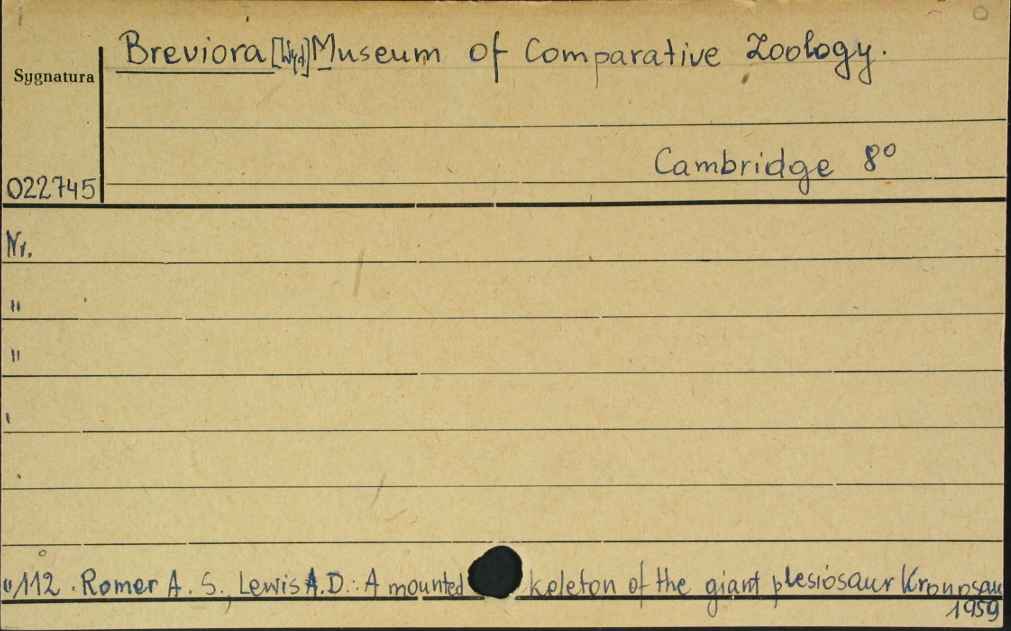 Breviora [Wyd] Museum of Comparative Zoology.
Sygnatura
Cambridge 8°
022745
Nr.
"
"
"112. Romer A. S., Lewis A.D.: A mounted keleton of the giant plesiosaur Kronosau
1959